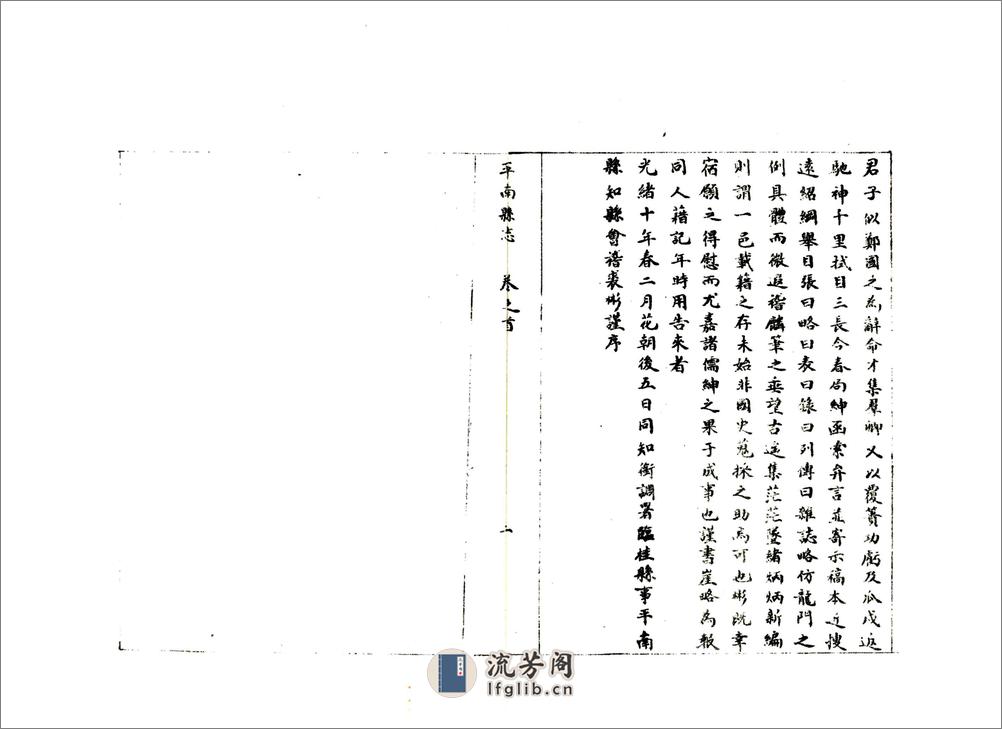 君子似鄭國之為辭命才集羣卿乂以覆簣功虧及瓜戍返
馳神千里拭目三長今春局紳函索弁言並寄示稿本近搜
遠紹綱舉目張曰略曰表曰錄曰列傳曰雜誌略仿龍門之
例具體而微遐稽麟筆之垂望古遥集茫茫墜緒炳炳新編
則謂一邑載籍之存未始非國史蒐採之助焉可也彬既幸
宿願之得慰而尤嘉諸儒紳之果于成事也謹書崖略為報
同人藉記年時用告來者
光緒十年春二月花朝後五日同知銜調署臨桂縣事平南
縣知縣會稽裘彬謹序
平南縣志 卷之首 二
流芳阁
lfglib.cn